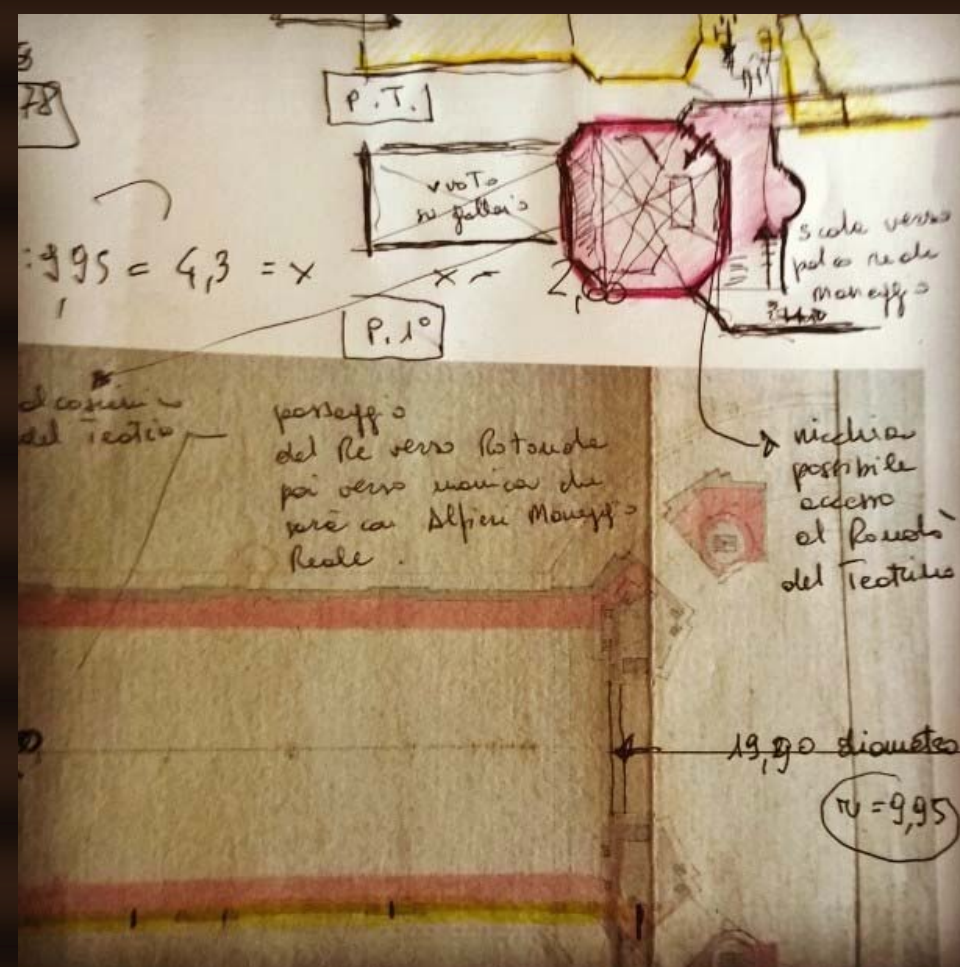 78
P.T.
vuoto
su galleria
:995 = 4,3 = x
x -
2,
scala verso
palco reale
maneggio
P. 1°
del Teatro
passaggio
del Re verso Rotonda
poi verso manica che
sarà con Alfieri Maneggio
Reale.
nicchia
possibile
accesso
al Rondò
del Teatrino
19,90 diametro
r = 9,95